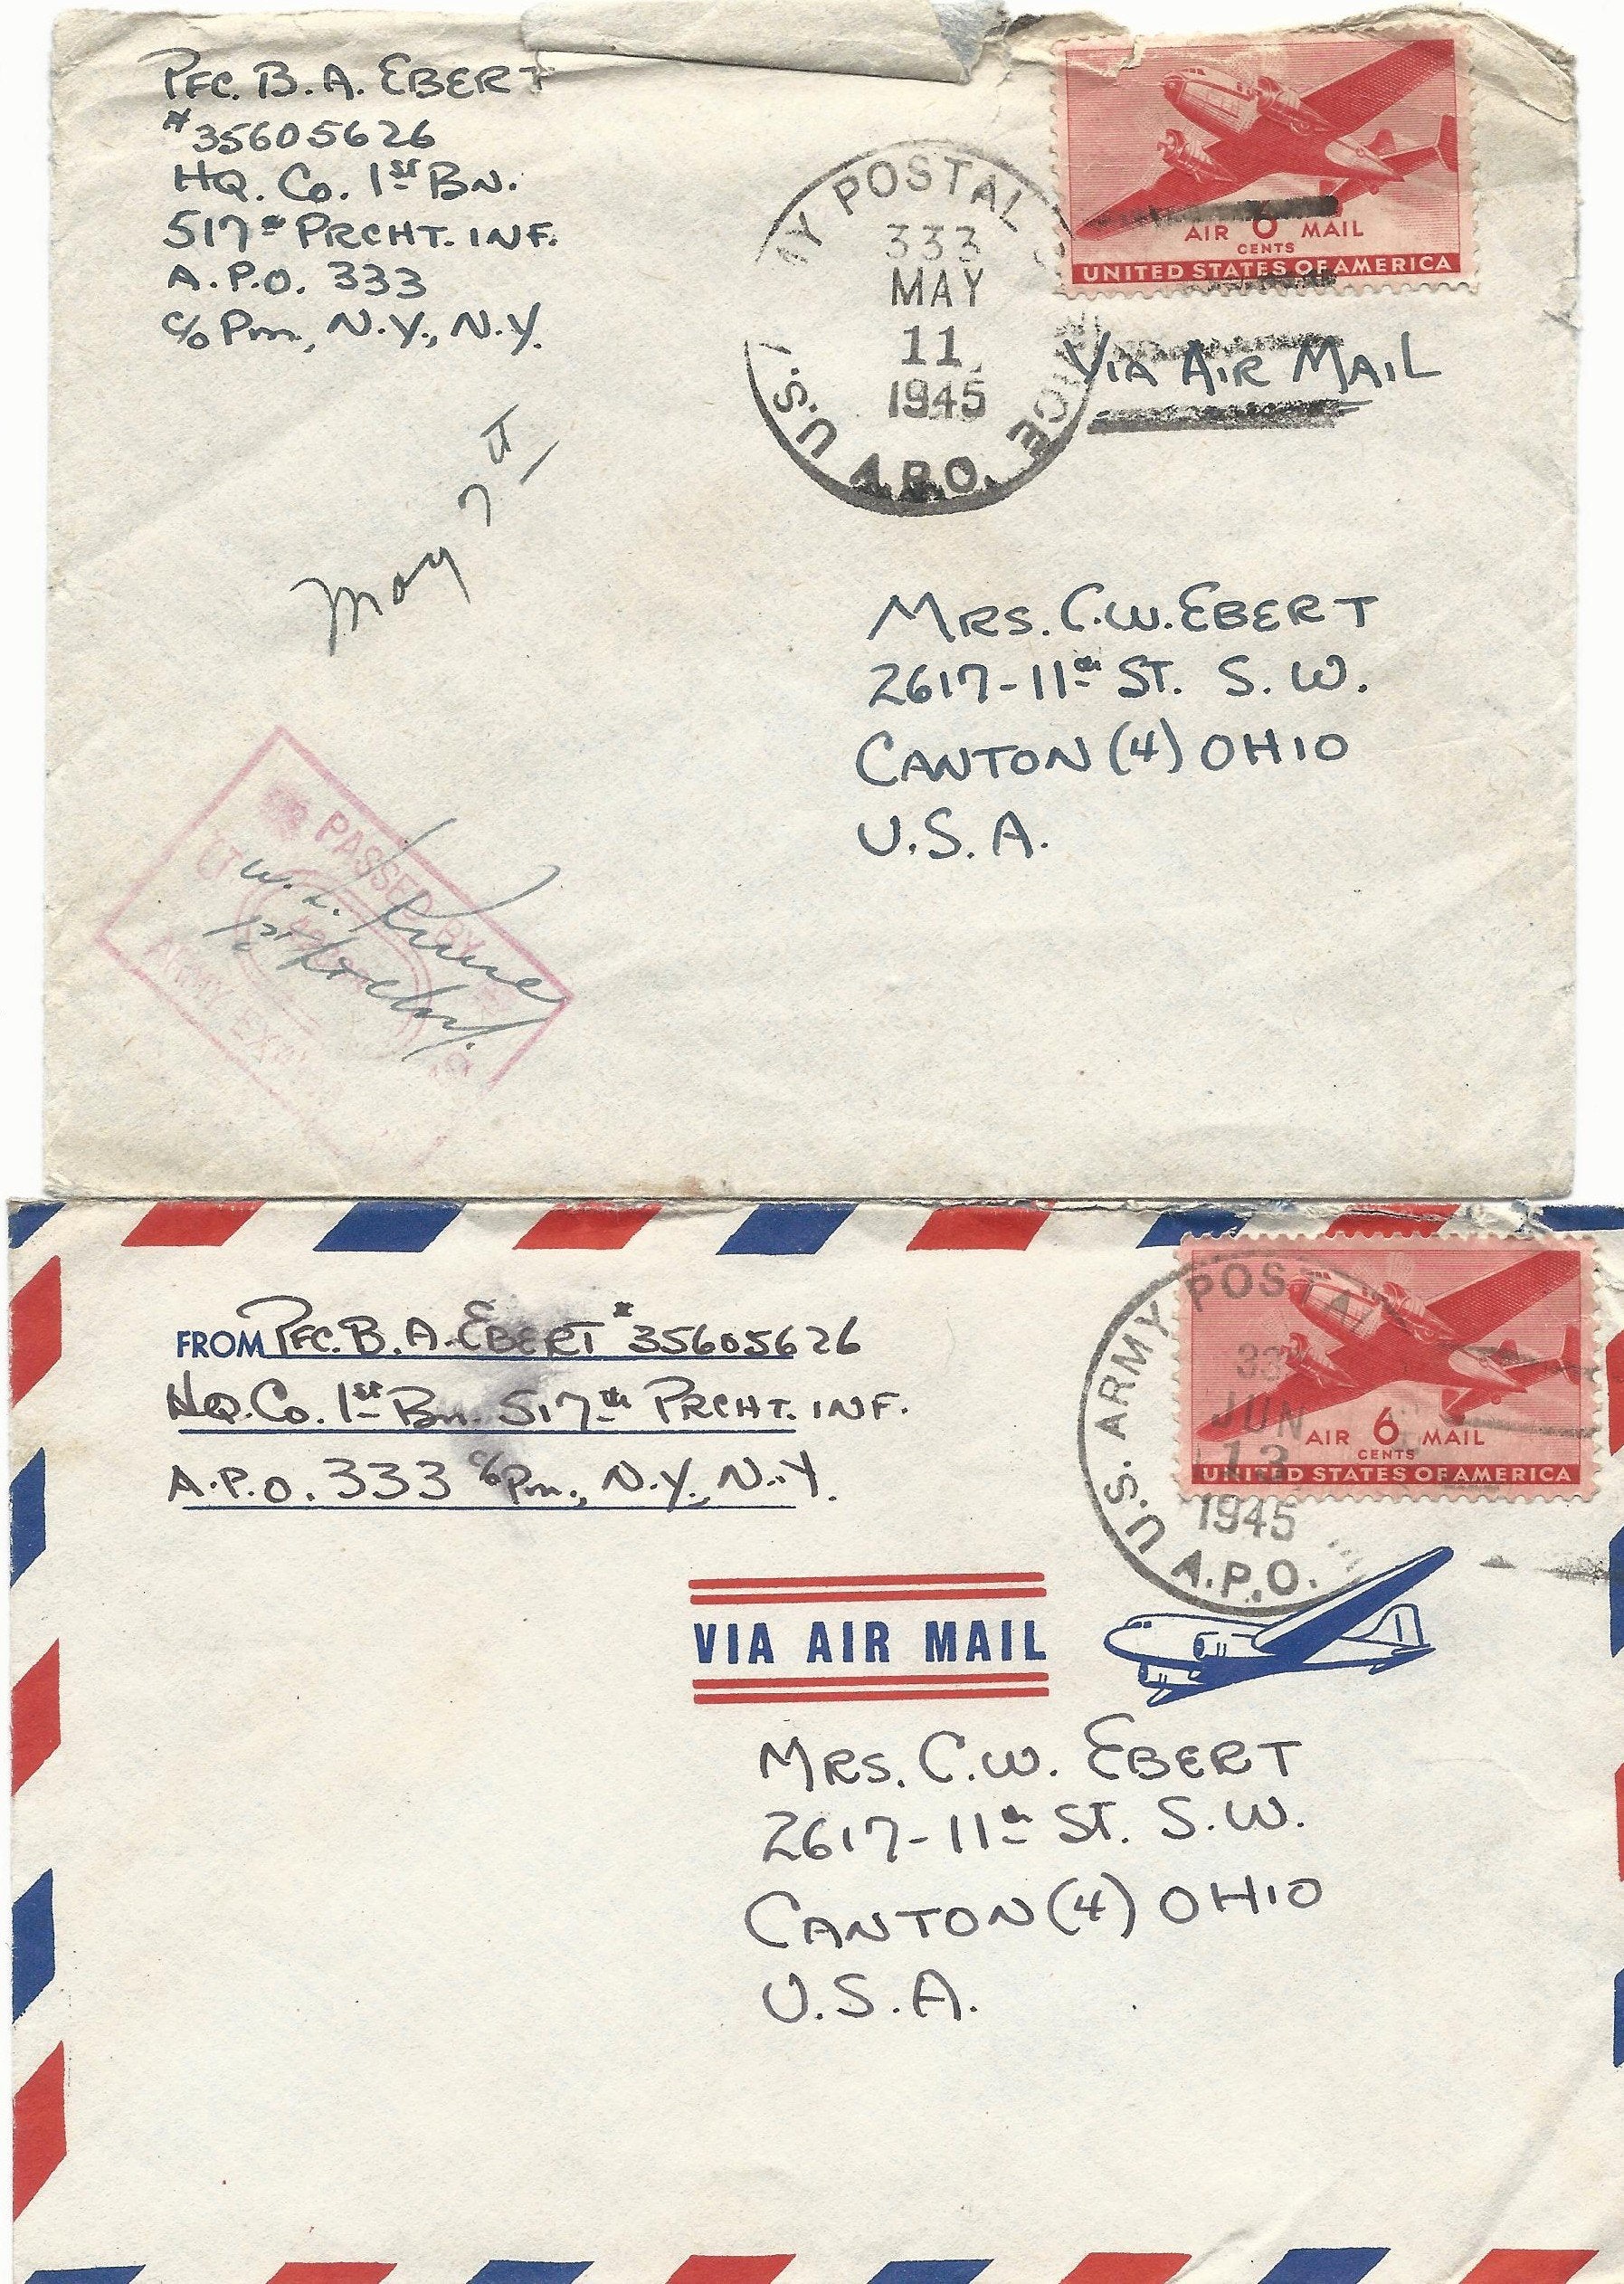 PFC. B. A. EBERT
# 35605626
HQ. Co. 1st BN.
517th PRCHT. INF.
A.P.O. 333
c/o Pm, N.Y., N.Y.
MY POSTAL
333
MAY
11
1945
U.S.
A.P.O.
AIR 6 MAIL
CENTS
UNITED STATES OF AMERICA
VIA AIR MAIL
May 7th
MRS. C.W. EBERT
2617-11th ST. S. W.
CANTON (4) OHIO
U.S.A.
PASSED BY
ARMY
W. L.
FROM PFC. B. A. EBERT #35605626
HQ. Co. 1st Bn. 517th PRCHT. INF.
A.P.O. 333 c/o Pm., N.Y., N.Y.
U.S. ARMY POSTAL
JUN
13
1945
A.P.O.
AIR 6 MAIL
CENTS
UNITED STATES OF AMERICA
VIA AIR MAIL
MRS. C.W. EBERT
2617-11th ST. S.W.
CANTON (4) OHIO
U.S.A.